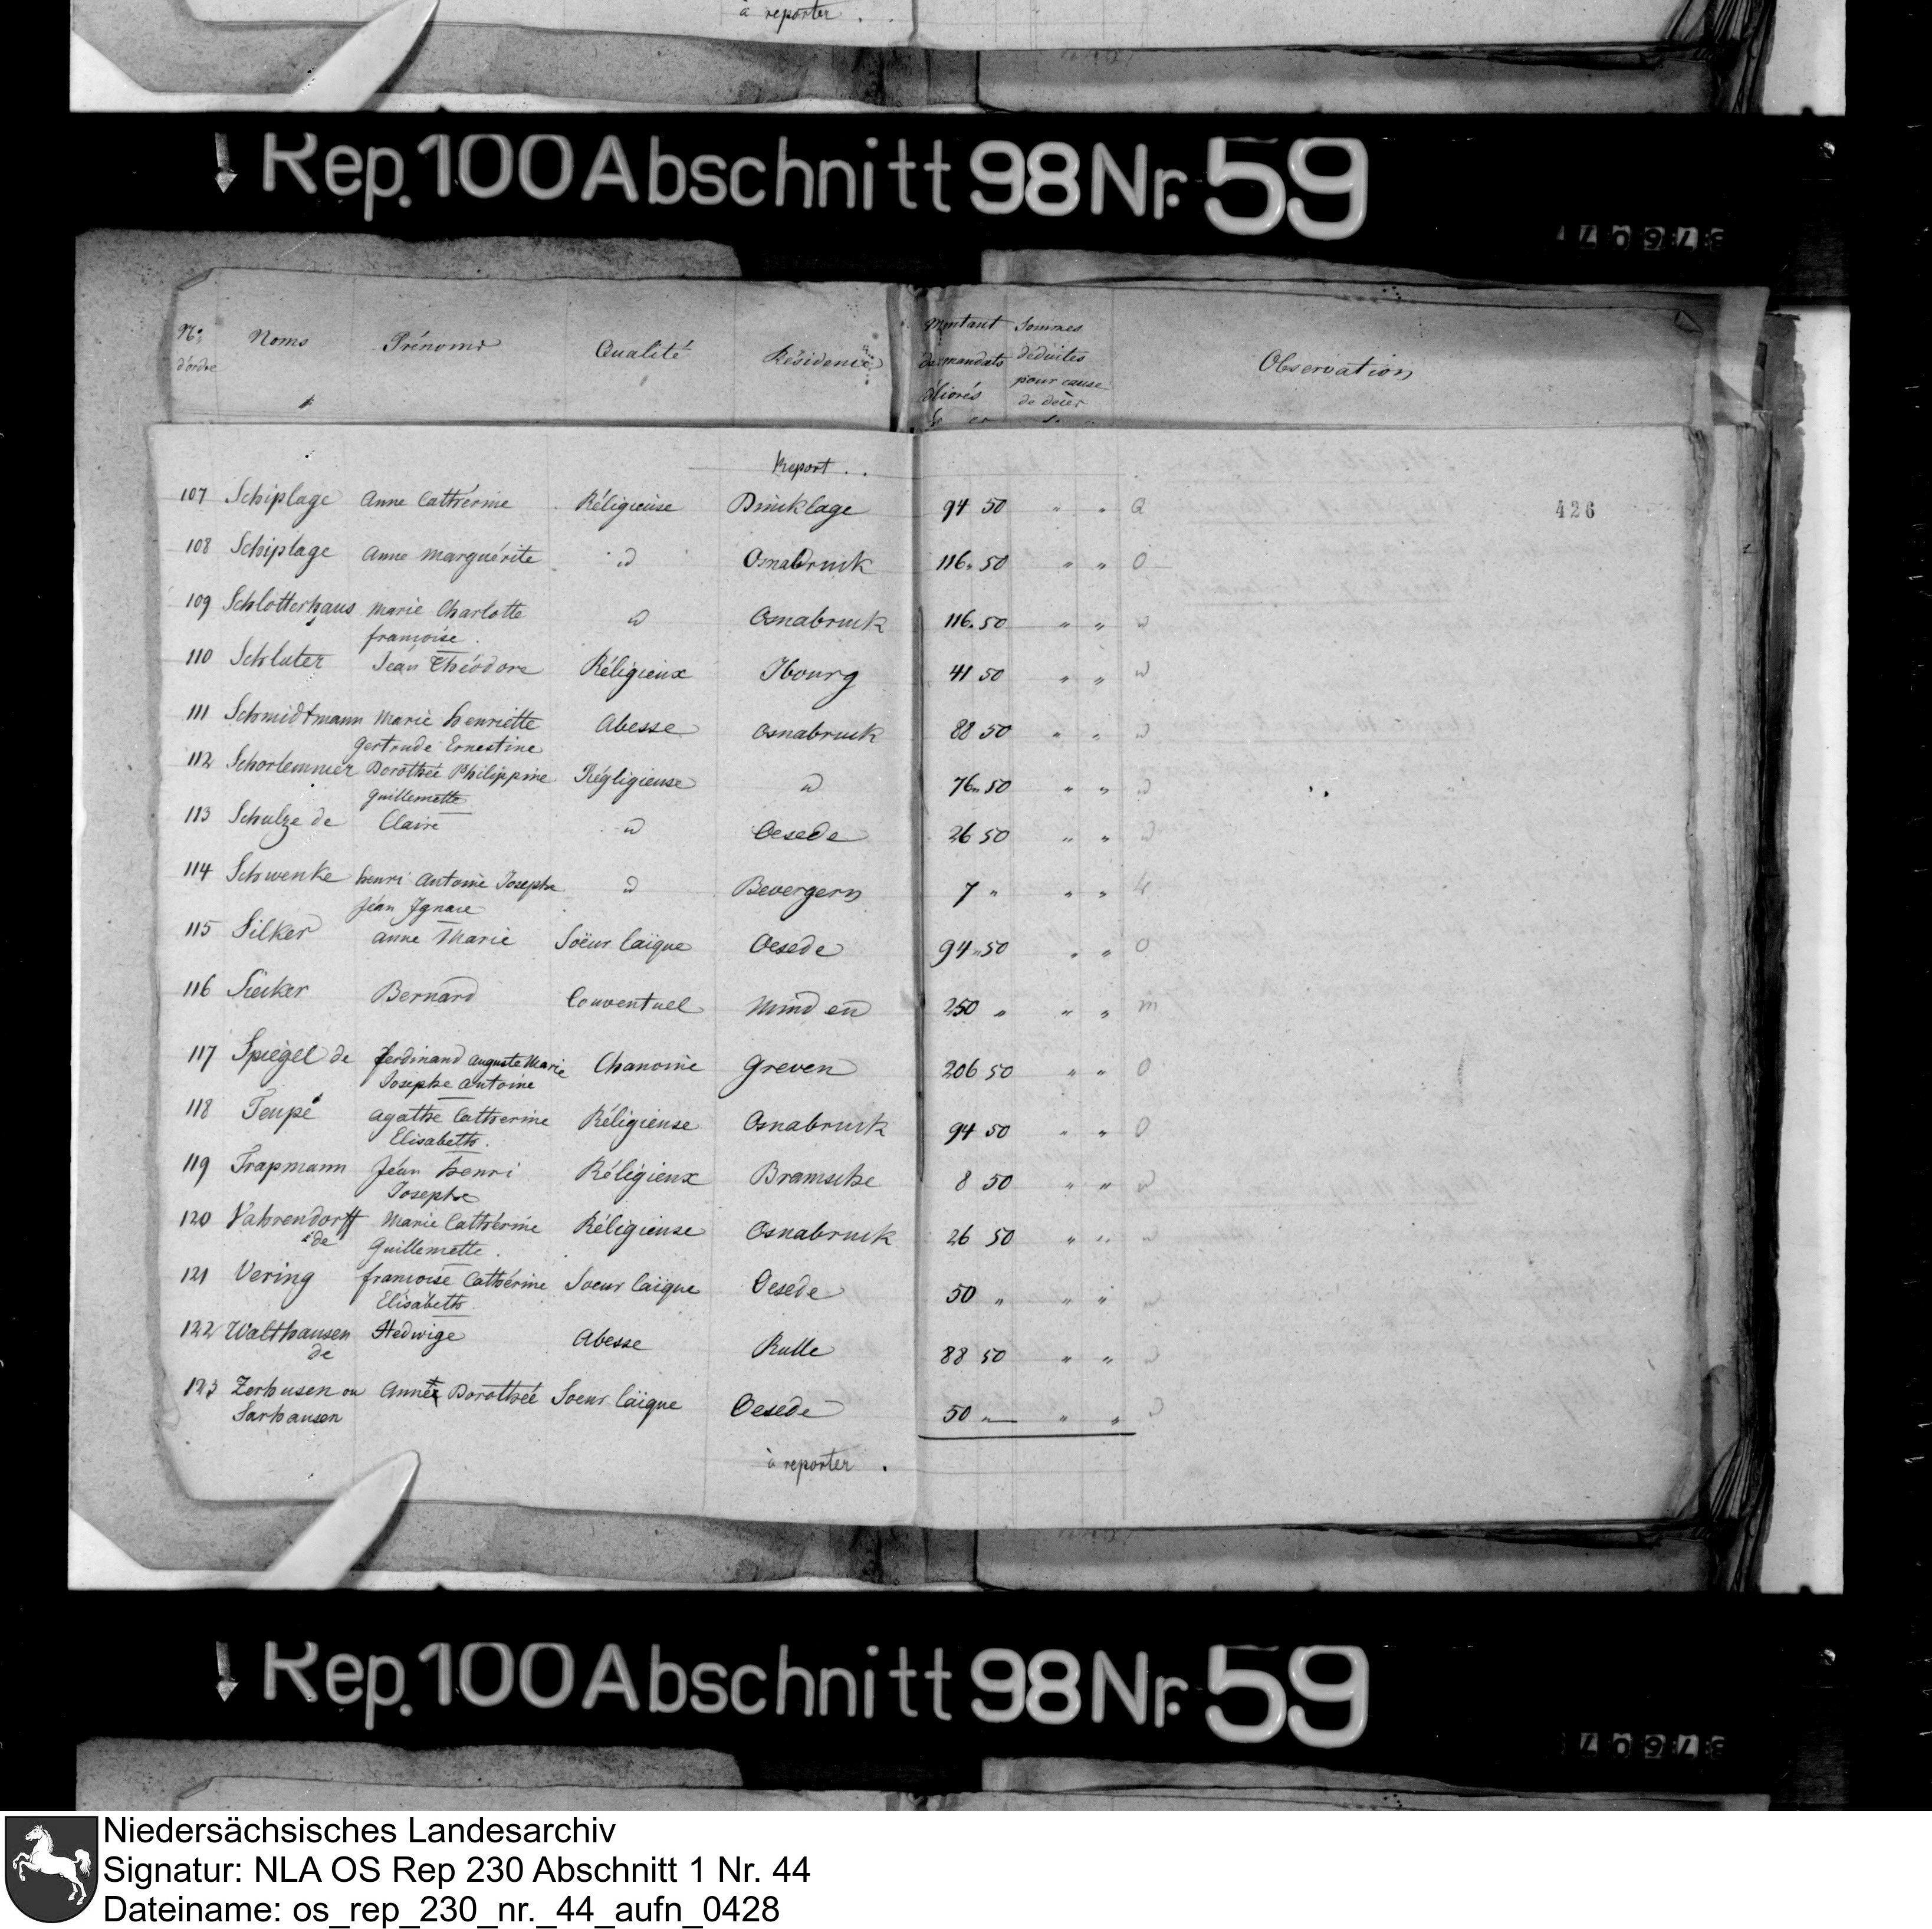 à reporter .
Rep. 100 Abschnitt 98 Nr. 59
No. d'ordre Noms Prénoms Qualité Résidence Montant des mandats déliorés Sommes déduites pour cause de décès Observation
Report . .
107 Schiplage Anne Cathérine Réligieuse Dincklage 94 50 " " 426
108 Schiplage Anne Marguérite id Osnabruck 116. 50 " " O
109 Schlotterhaus Marie Charlotte id Osnabruck 116. 50 " "
françoise .
110 Schluter Jéan Théodore Réligieux Ibourg 41 50 " "
111 Schmidtmann Marie henriette Abesse Osnabruck 88 50 " "
Gertrude Ernestine
112 Schorlemmer Dorothée Philippine Régligieuse id 76 " 50 " "
Guillemette
113 Schulze de Claire id Oesede 26 50 " "
114 Schwenke henri Antoine Josephe id Bevergern 7 " " "
Jéan Ignace
115 Silker Anne Marie Soëur laïque Oesede 94 " 50 " " O
116 Sücker Bernard Conventuel Minden 250 " " " m
117 Spiegel de ferdinand Auguste Marie Chanoine Greven 206 50 " " O
Josephe Antoine
118 Teupe Agathe Catherine Réligieuse Osnabruck 94 50 " " O
Elisabeth .
119 Trapmann Jéan henri Réligieux Bramsche 8 50 " "
Josephe
120 Vahrendorff Marie Cathérine Réligieuse Osnabruck 26 50 " "
de Guillemette .
121 Vering françoise Cathérine Soeur laïque Oesede 50 " " "
Elisabeth .
122 Walthausen Hedwige Abesse Rulle 88 50 " "
de
123 Zerhusen ou Anne Dorothée Soeur laïque Oesede 50 " " "
Sarhausen
à reporter .
Rep. 100 Abschnitt 98 Nr. 59
Niedersächsisches Landesarchiv
Signatur: NLA OS Rep 230 Abschnitt 1 Nr. 44
Dateiname: os_rep_230_nr._44_aufn_0428